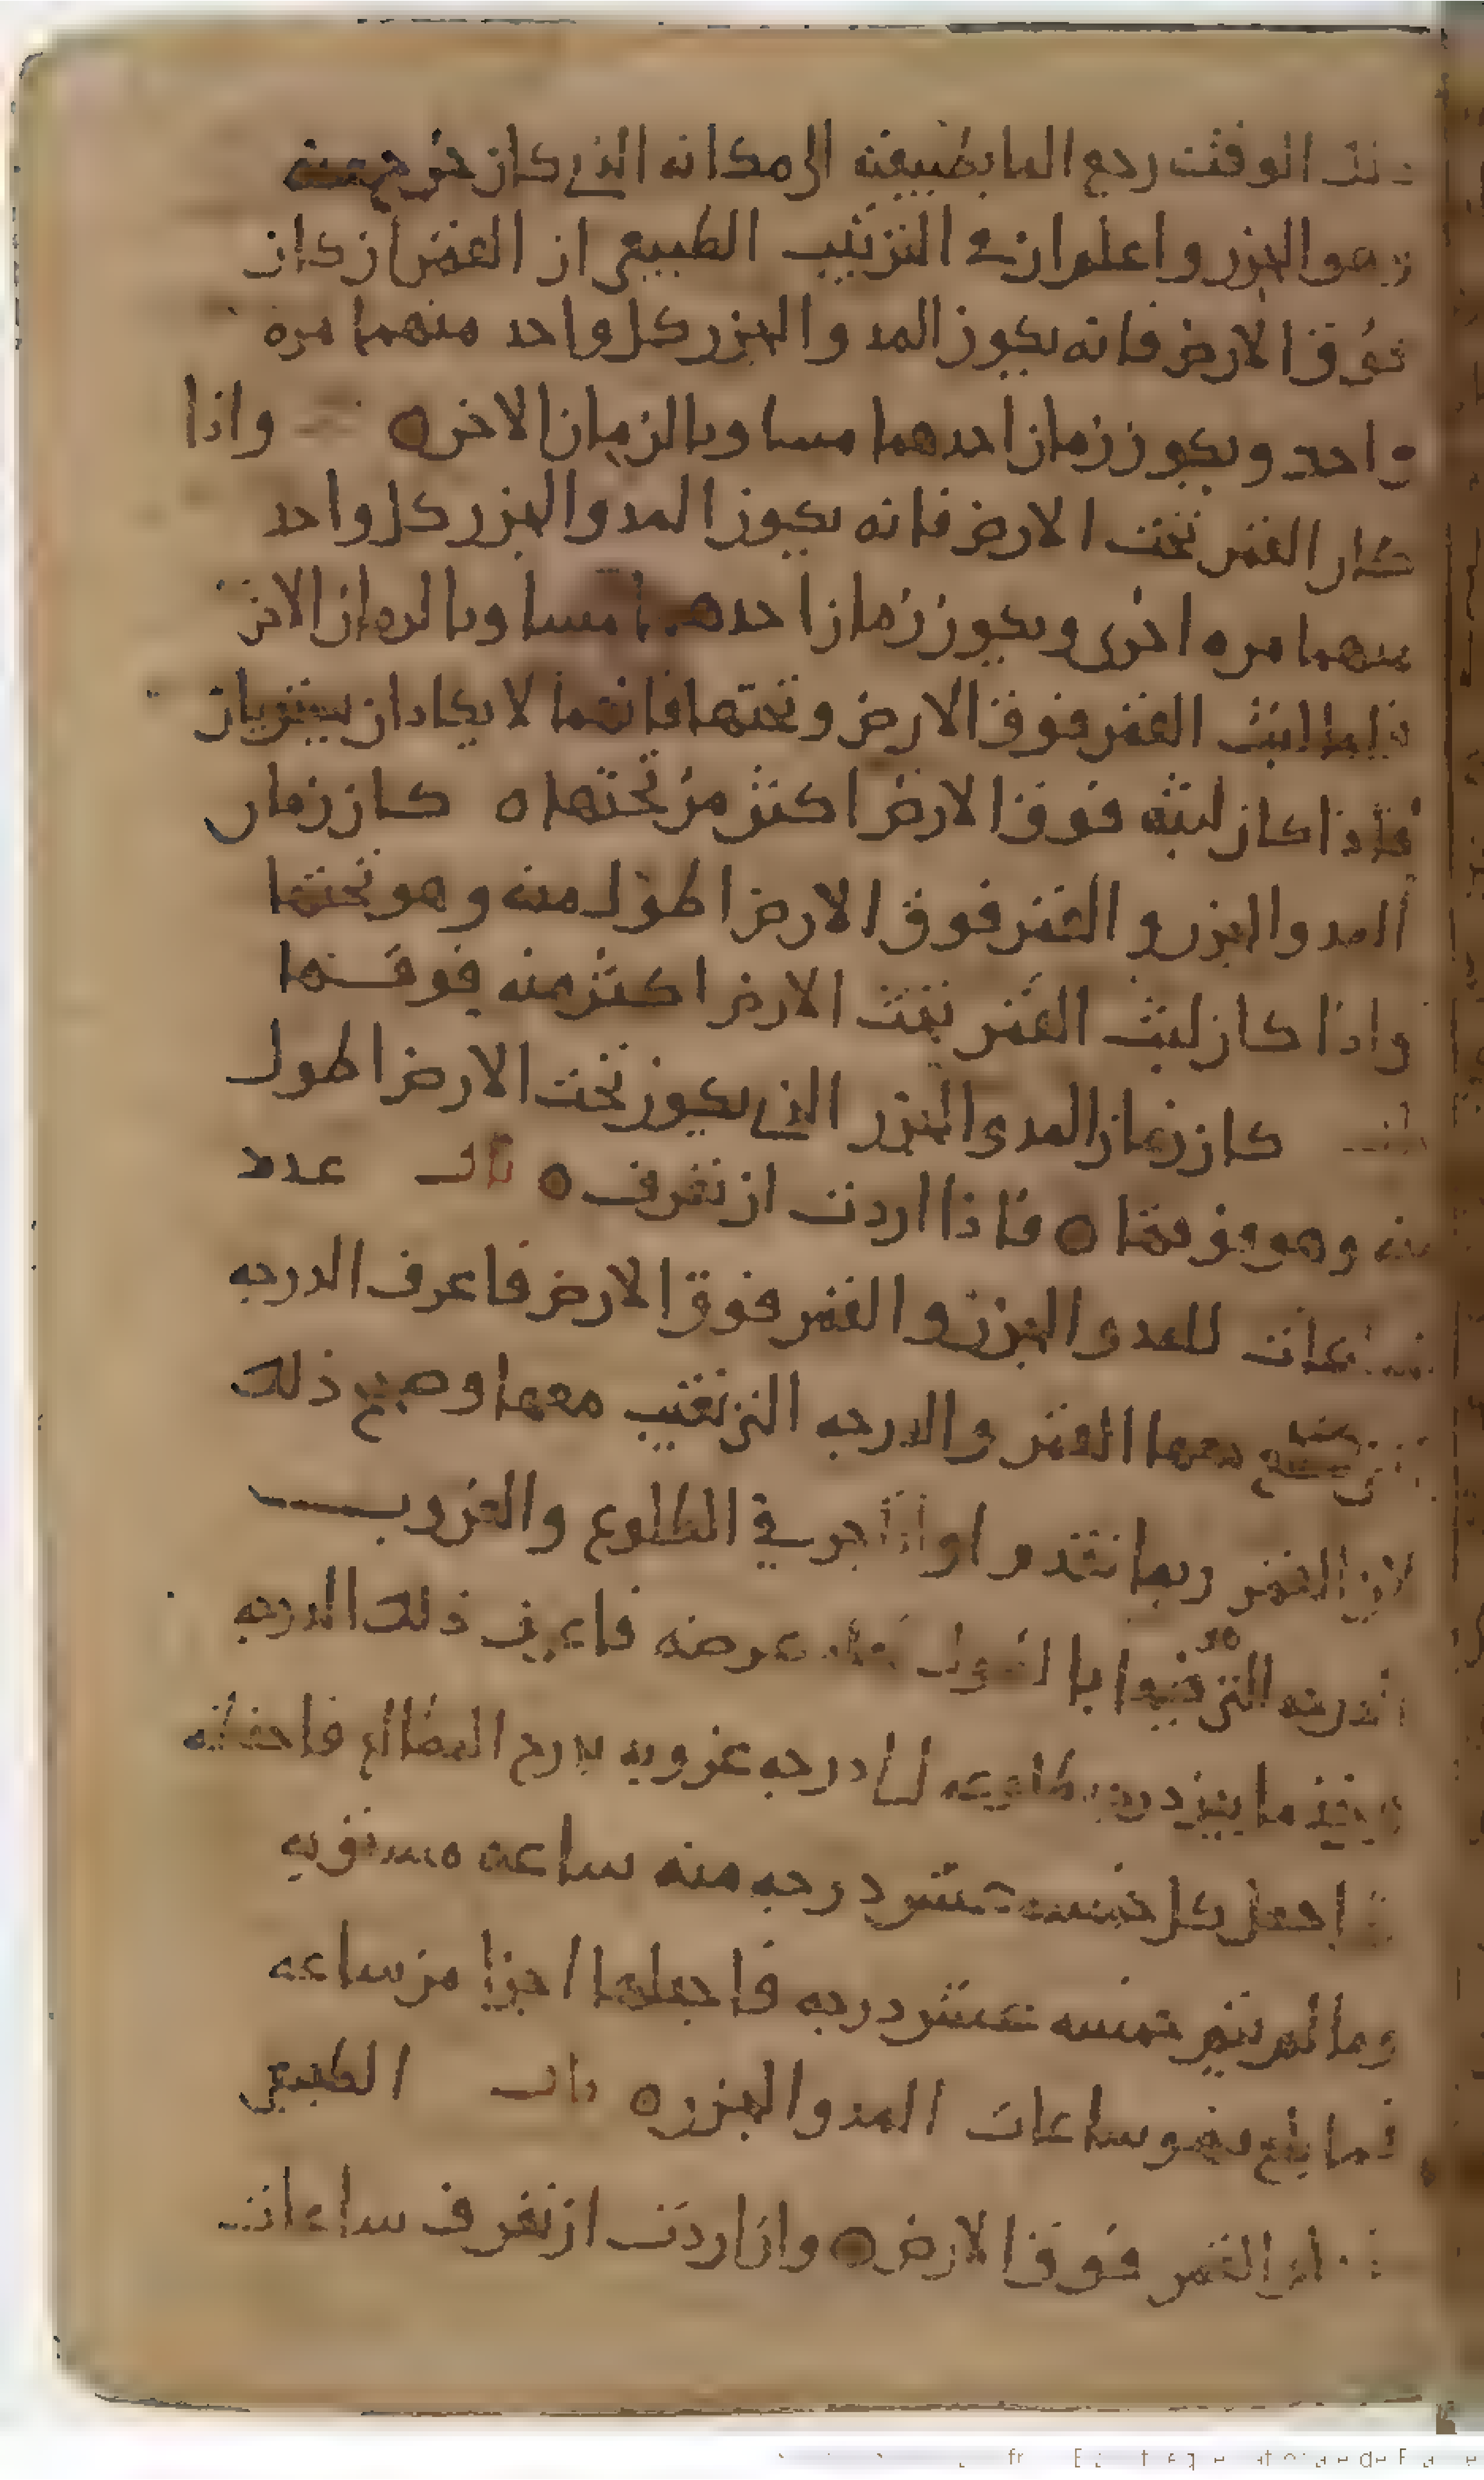 الوقت رجع الما بطبيعته الى مكانه الذي كان خرج منه
وهو الجزر واعلم ان في الترتيب الطبيعي ان القمر ان كان
فوق الارض فانه يكون المد والجزر كل واحد منهما مرة
واحد ويكون زمان احدهما مساويا لزمان الاخر ه واذا
كان القمر تحت الارض فانه يكون المد والجزر كل واحد
منهما مره اخرى ويكون زمان احدهما مساويا لزمان الاخر
لبث القمر فوق الارض وتحتها فانهما لا يكادان يستويان
فاذا كان لبثه فوق الارض اكثر من تحتها ه كان زمان
المد والجزر والقمر فوق الارض اطول منه وهو تحتها
واذا كان لبث القمر تحت الارض اكثر منه فوقها
كان زمان المد والجزر الذي يكون تحت الارض اطول
منه وهو فوقها ه فاذا اردت ان تعرف ه باب عدد
ساعات المد والجزر والقمر فوق الارض فاعرف الدرجه
معها القمر والدرجه التي تغيب معها وصحح ذلك
لان القمر ربما تقدم او تاخر في الطلوع والغروب
التي هو فيها بالطول عرضه فاعرف ذلك الدرجه
ما بين درجه طلوعه الى درجه غروبه بدرج المطالع فاحفظه
اجعل كل خمسه عشر درجه منه ساعه مستويه
وما لم يتم خمسه عشر درجه فاجعلها اجزا من ساعه
فما بلغ فهو ساعات المد والجزر ه باب الطبيعي
القمر فوق الارض ه واذا اردت ان تعرف ساعات